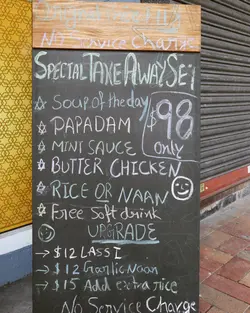 No Service Charge
SPECIAL TAKE AWAY SET
SOUP of the day
PAPADAM
MINT SAUCE
BUTTER CHICKEN
RICE OR NAAN
Free Soft drink
$98
only
UPGRADE
→ $12 LASSI
→ $12 Garlic Naan
→ $15 Add extra rice
No Service Charge